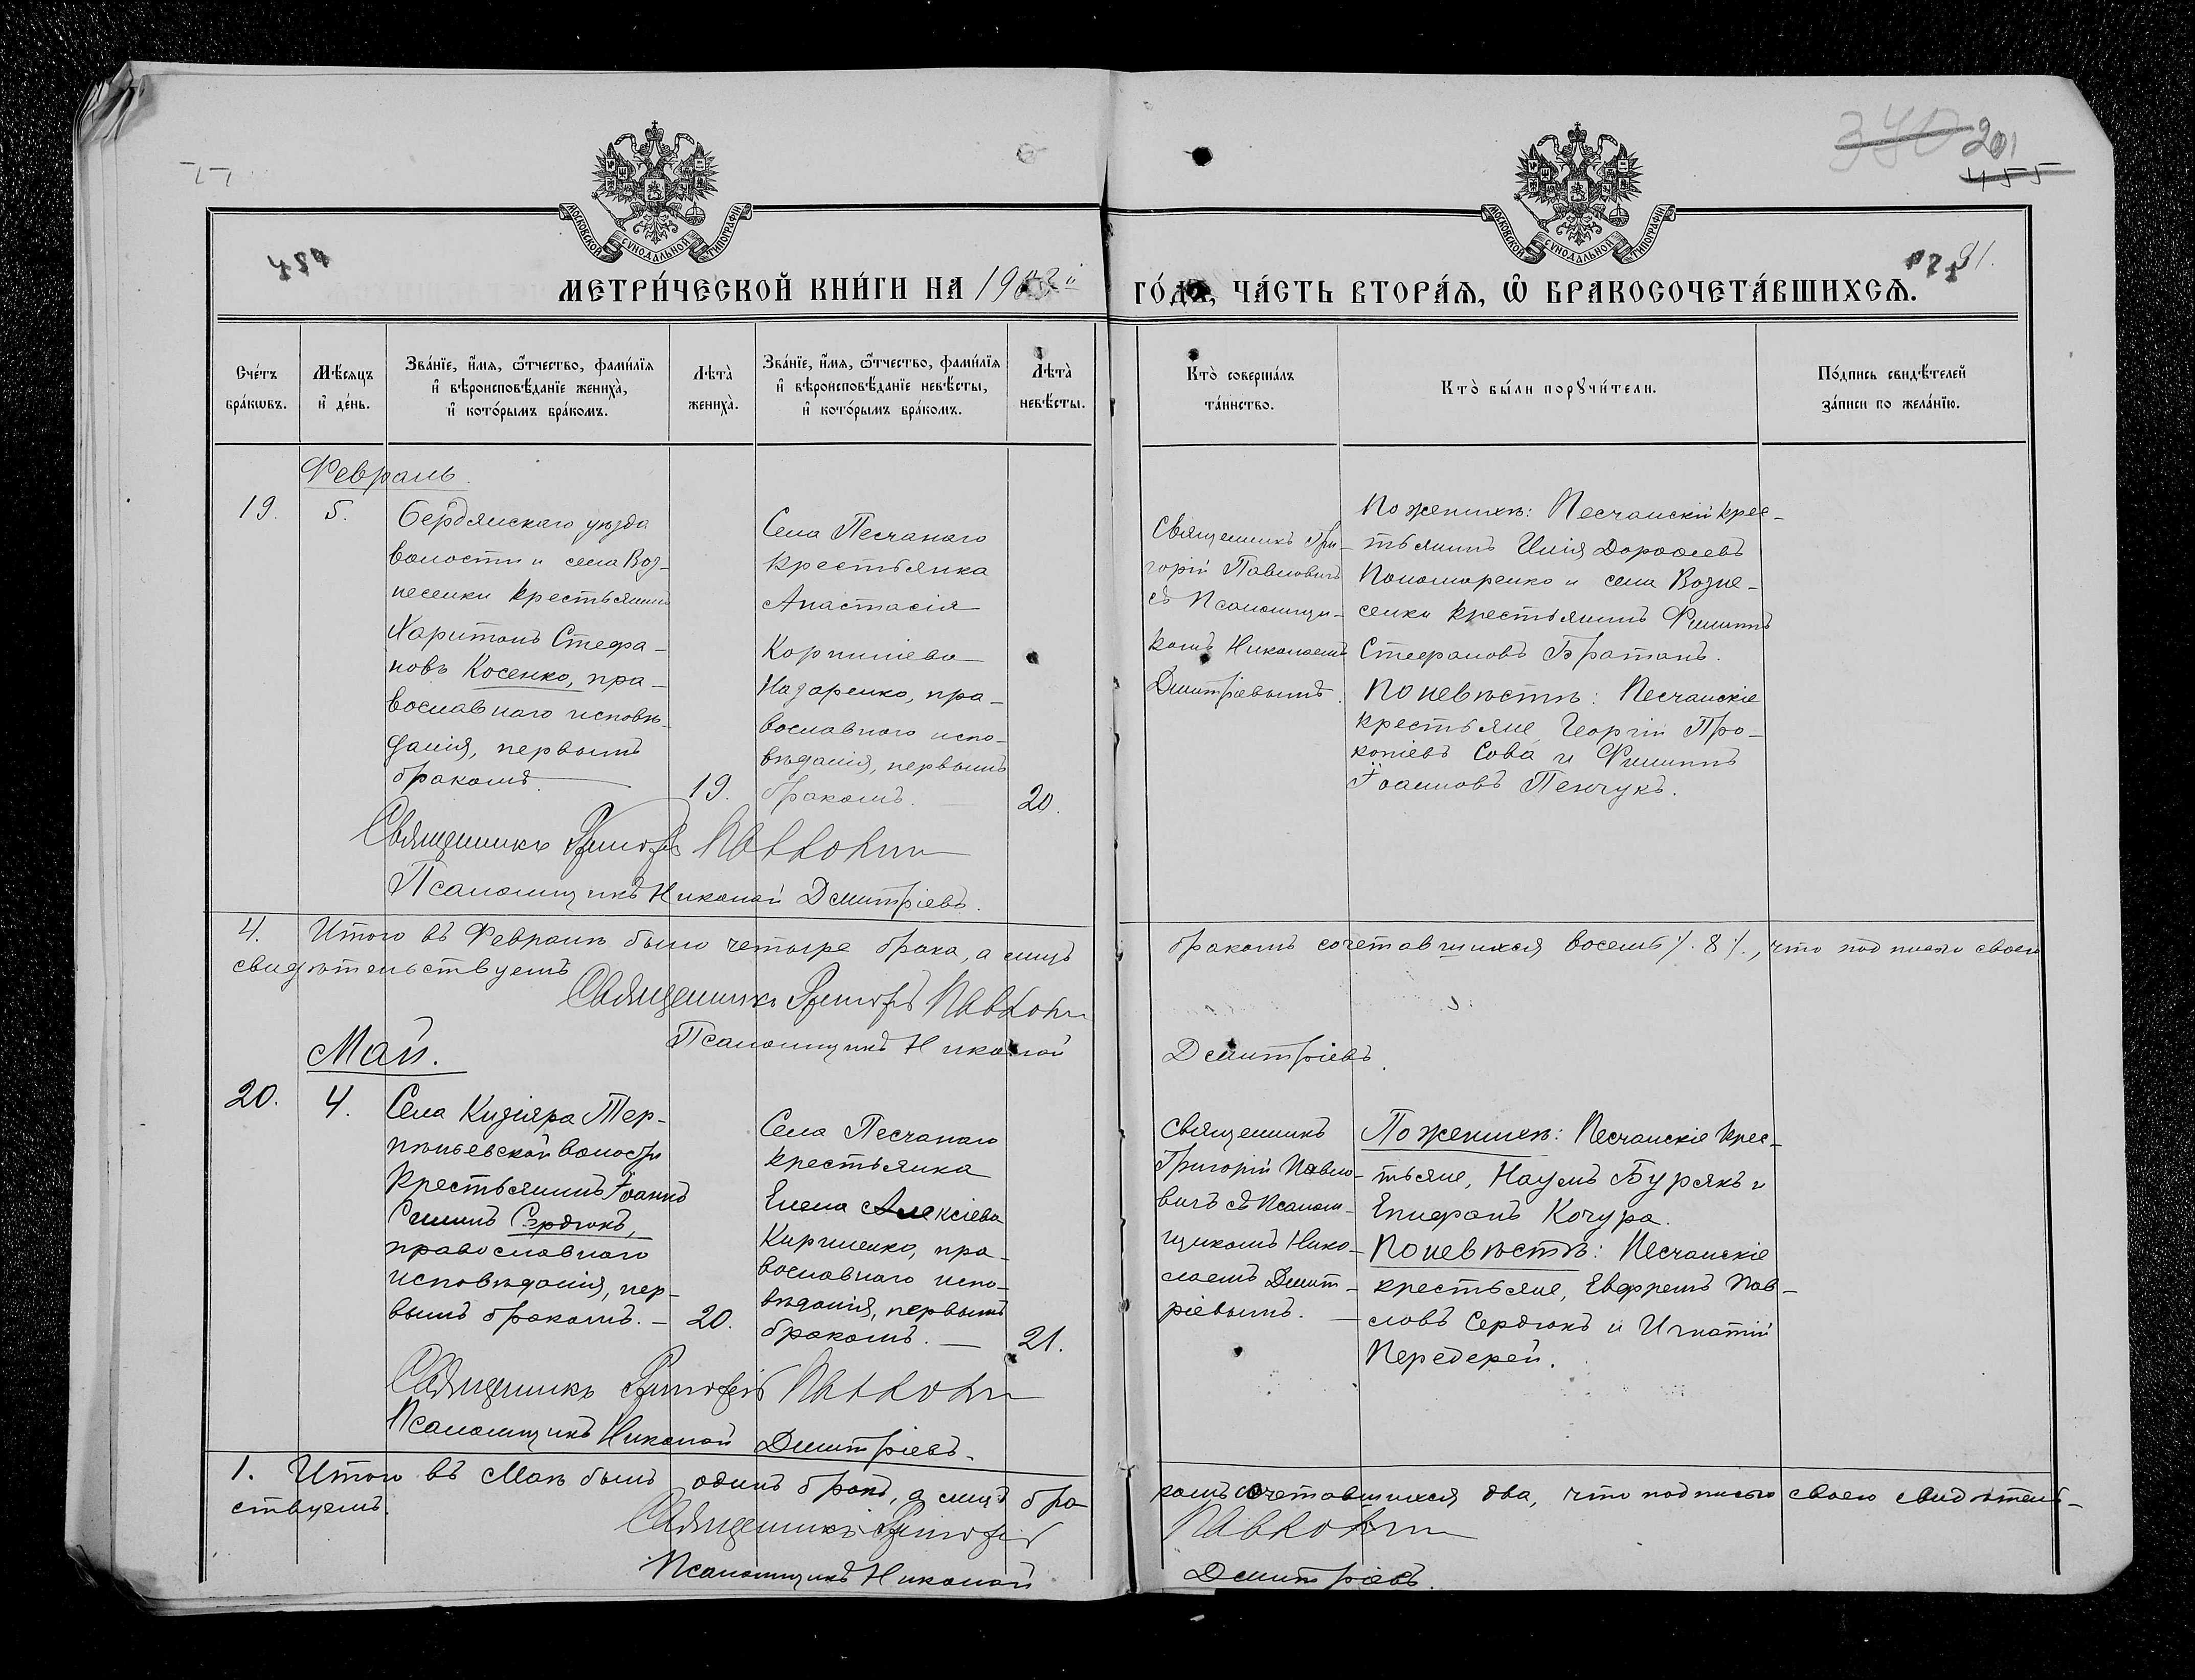 МОСКОВСКОЙ СѴНОДАЛЬНОЙ ТИПОГРАФІИ
МОСКОВСКОЙ СѴНОДАЛЬНОЙ ТИПОГРАФІИ
340 201
455
454
91.
МЕТРИ́ЧЕСКОЙ КНИ́ГИ НА 190
ГО́ДЪ, ЧА́СТЬ ВТОРА́Ѧ, Ѽ БРАКОСОЧЕТА́ВШИХСѦ.
Сче́тъ бра́кѡвъ.
Мѣ́сяцъ и҆ де́нь.
Зва́нїе, и҆́мѧ, ѻ҆́тчество, фами́лїѧ и҆ вѣроисповѣ́данїе женихà, и҆ кото́рымъ бра́комъ.
Лѣ́та̀ женихà.
Зва́нїе, и҆́мѧ, ѻ҆́тчество, фами́лїѧ и҆ вѣроисповѣ́данїе невѣ́сты, и҆ кото́рымъ бра́комъ.
Лѣ́та̀ невѣ́сты.
Кто̀ соверша́лъ та́инство.
Кто̀ бы́ли порꙋчи́тели.
По́дпись свидѣ́телей за́писи по жела́нїю.
Февраль.
19.
5.
Бердянскаго уѣзда
волости и села Воз-
несенки крестьянинъ
Харитонъ Стефа-
новъ Косенко, пра-
вославнаго исповѣ-
данія, первымъ
бракомъ.
19.
Села Песчанаго
крестьянка
Анастасія
Корниліева
Назаренко, пра-
вославнаго испо-
вѣданія, первымъ
бракомъ.
20.
Священникъ Гри-
горій Павловичъ
съ Псаломщи-
комъ Николаемъ
Дмитріевымъ.
По женихѣ: Песчанскій крес-
тьянинъ Илія Дороѳеевъ
Пономаренко и села Возне-
сенки крестьянинъ Филиппъ
Стефановъ Братанъ.
По невѣстѣ: Песчанскіе
крестьяне Георгій Про-
копіевъ Сова и Филиппъ
Іоанновъ Пенчукъ.
Священникъ Григорій Павловичъ
Псаломщикъ Николай Дмитріевъ.
4. Итого въ Февралѣ было четыре брака, а лицъ бракомъ сочетавшихся восемь /. 8 /., что подписью своею
свидѣтельствуемъ
Священникъ Григорій Павловичъ
Псаломщикъ Николай Дмитріевъ.
Май.
20.
4.
Села Кизіяра Тер-
пѣньевской волости
крестьянинъ Іоаннъ
Сердюкъ,
православнаго
исповѣданія, пер-
вымъ бракомъ. —
20.
Села Песчанаго
крестьянка
Елена Алексіева
Кириленко, пра-
вославнаго испо-
вѣданія, первымъ
бракомъ. —
21.
Священникъ
Григорій Павло-
вичъ съ Псалом-
щикомъ Нико-
лаемъ Дмит-
ріевымъ. —
По женихѣ: Песчанскіе крес-
тьяне, Наумъ Бурякъ и
Епифанъ Кочура.
По невѣстѣ: Песчанскіе
крестьяне, Евфремъ Пав-
ловъ Сердюкъ и Игнатій
Передерей.
Священникъ Григорій Павловичъ
Псаломщикъ Николай Дмитріевъ.
1. Итого въ Маѣ былъ одинъ бракъ, а лицъ бра-
комъ сочетавшихся два, что подписью своею свидѣтель-
ствуемъ.
Священникъ Григорій Павловичъ
Псаломщикъ Николай Дмитріевъ.